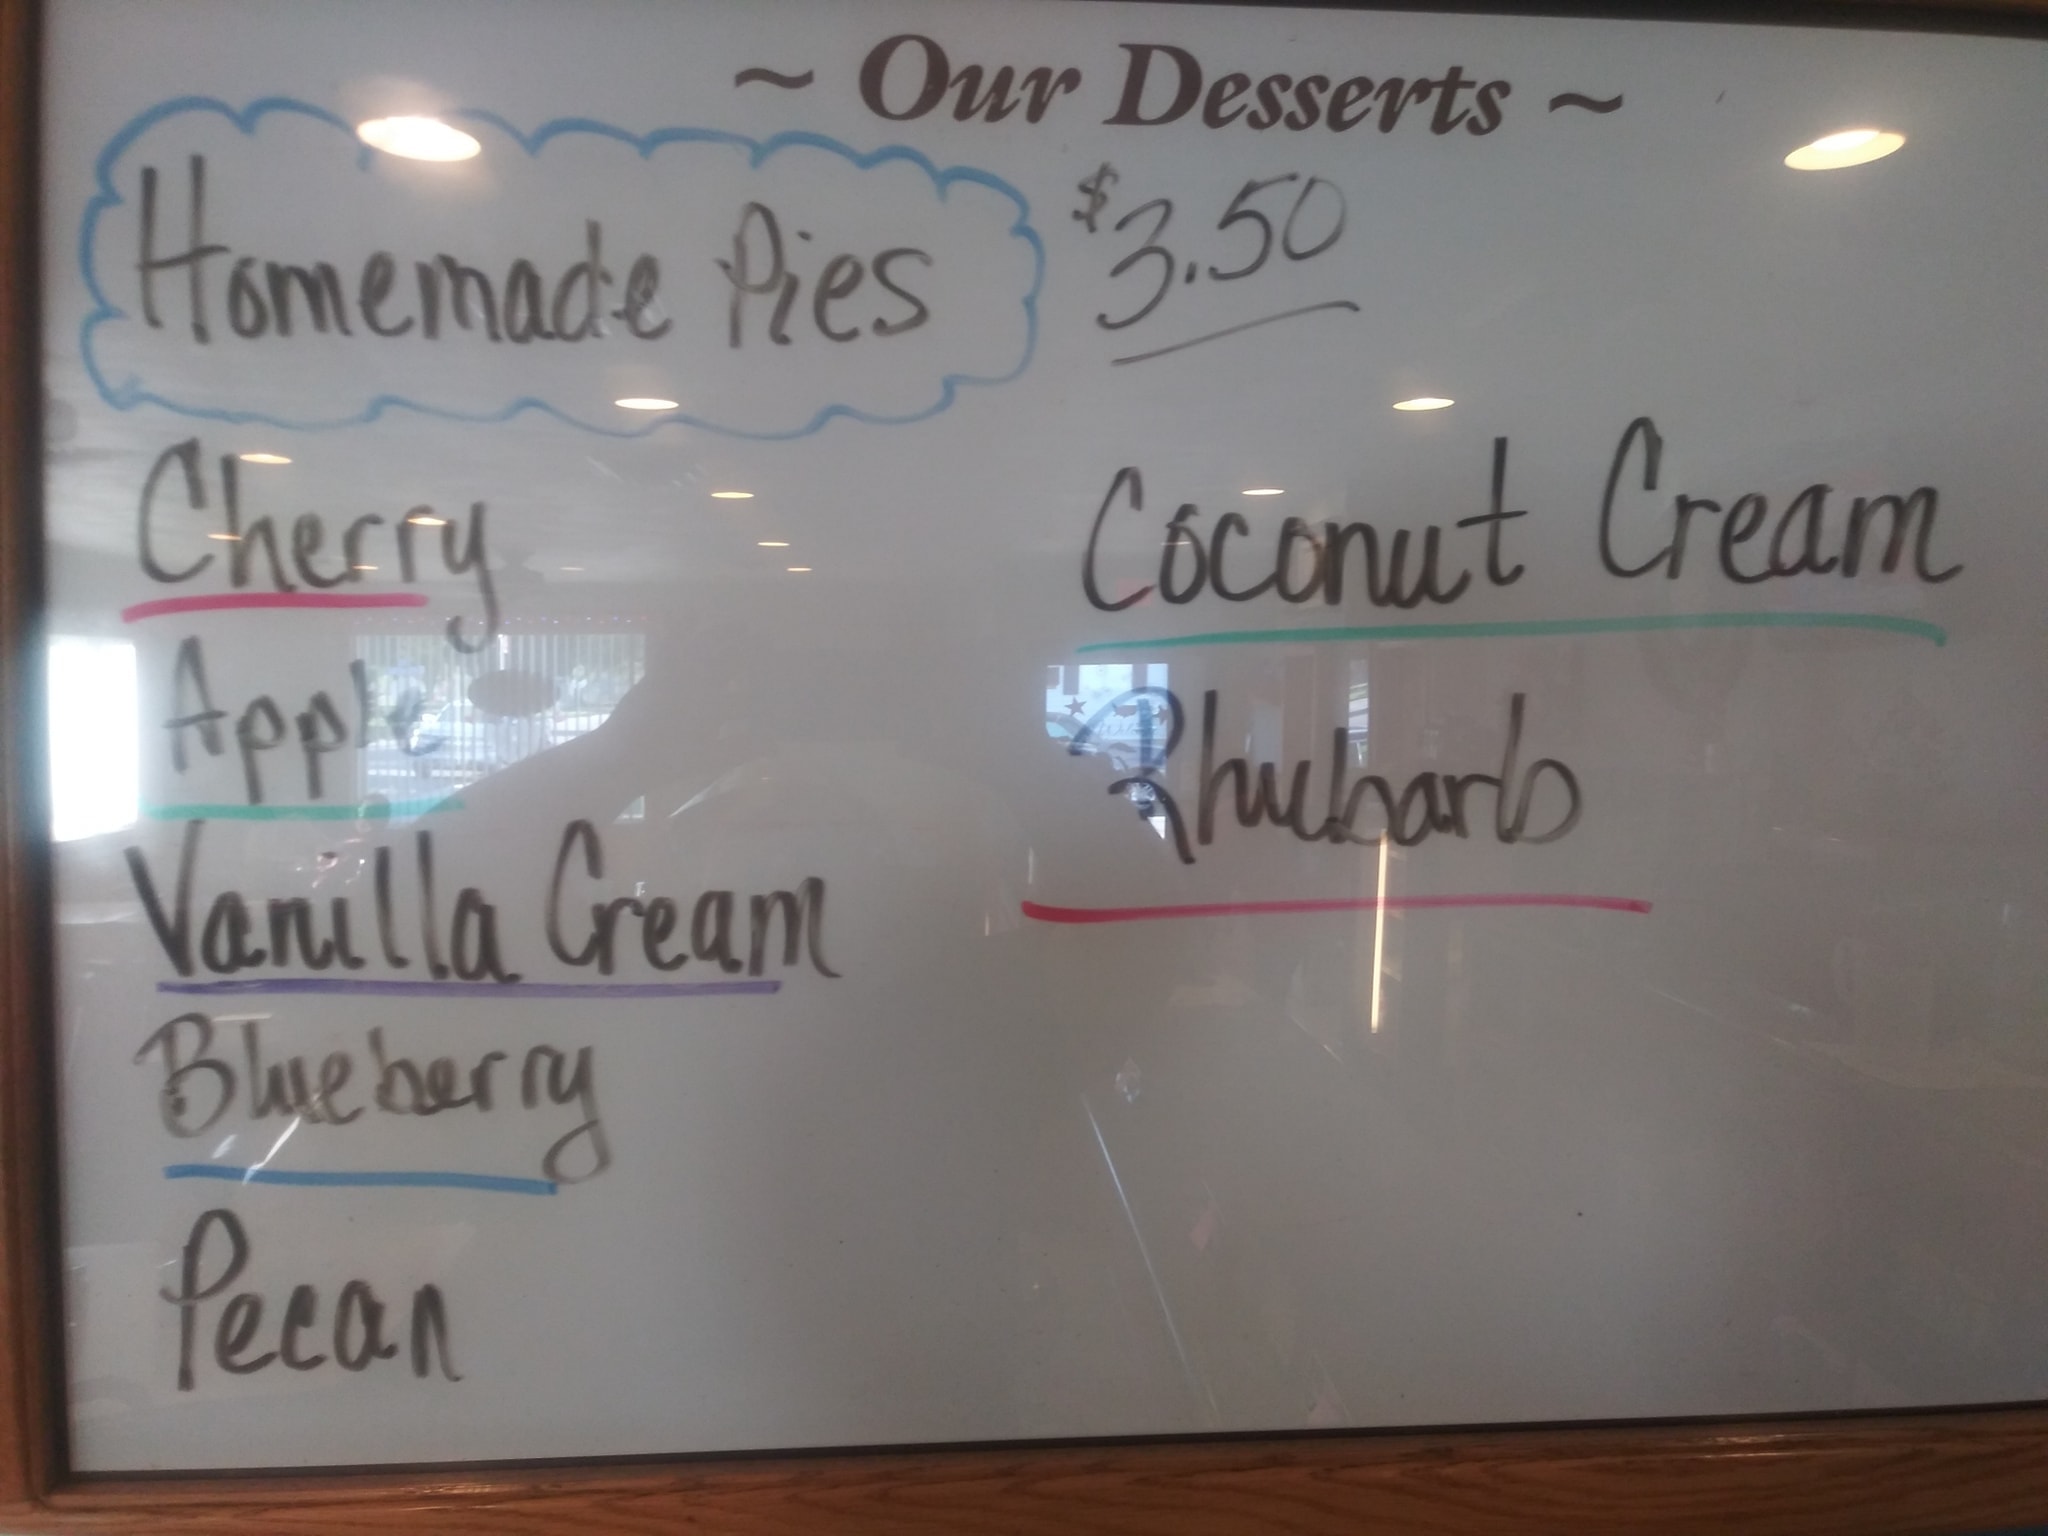 ~ Our Desserts ~
Homemade Pies $3.50
Cherry
Apple
Vanilla Cream
Blueberry
Pecan
Coconut Cream
Rhubarb